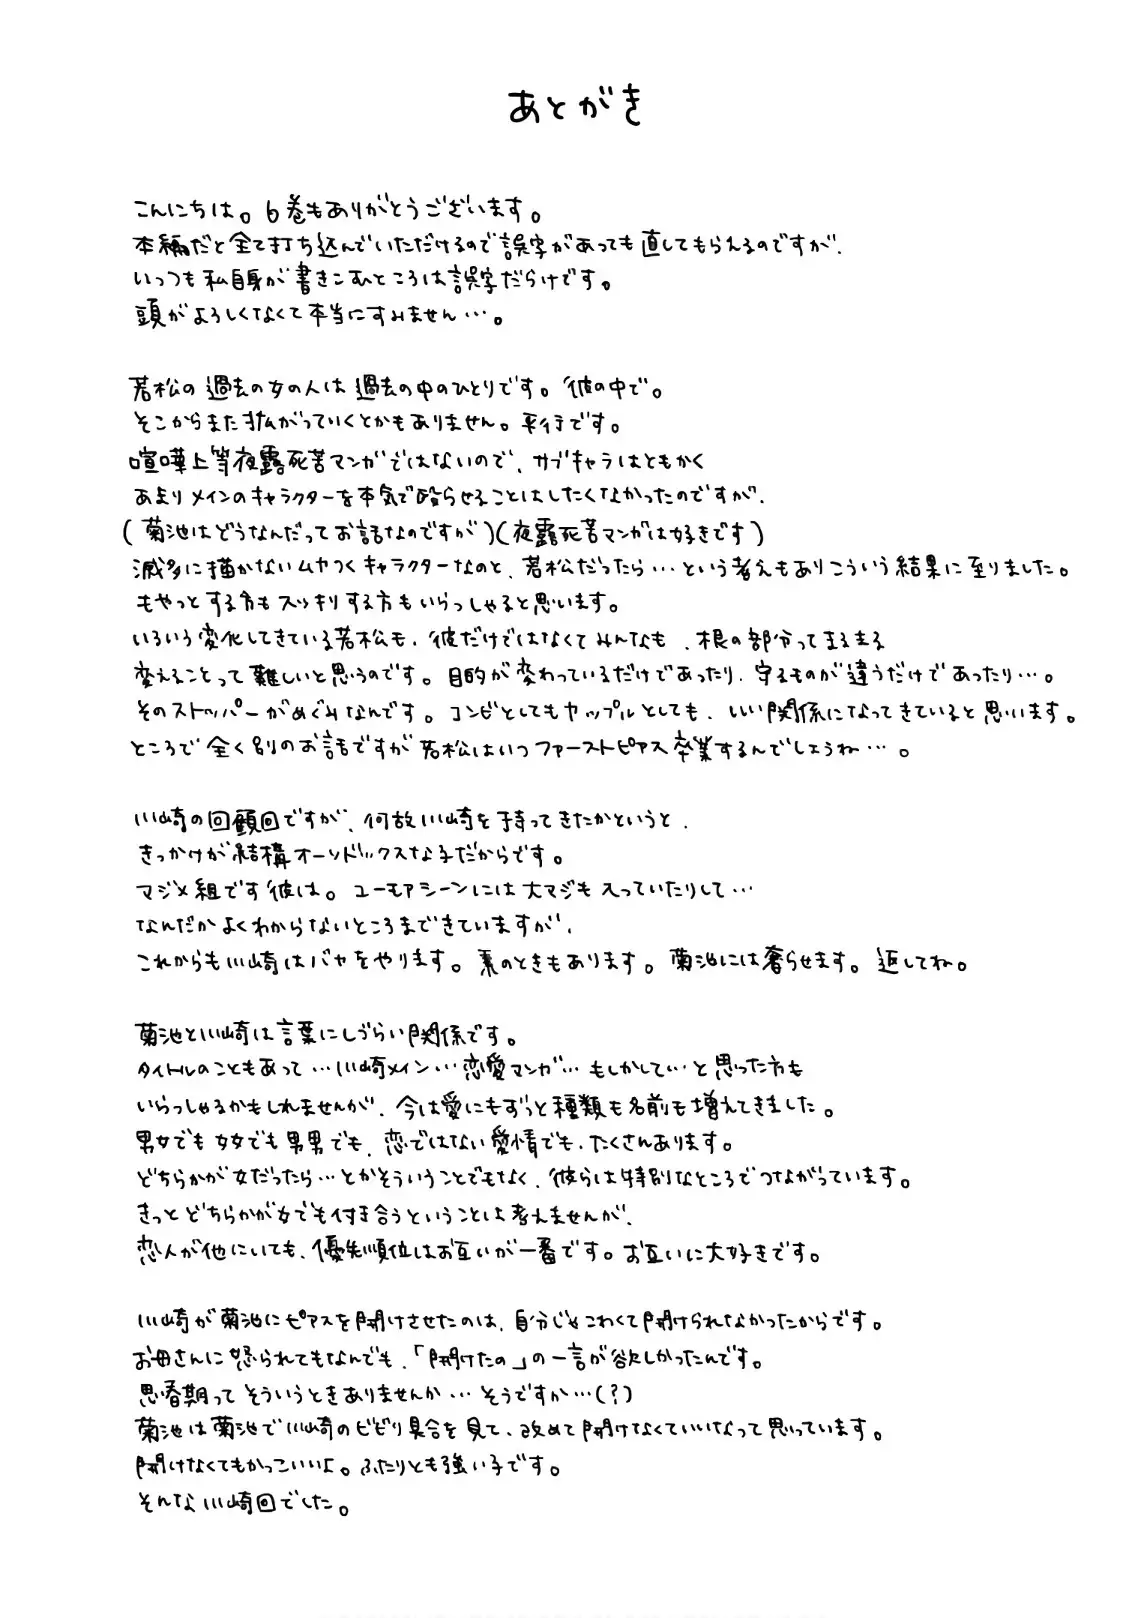 あとがき
こんにちは。6巻もありがとうございます。
本編だと全て打ち込んでいただけるので誤字があっても直してもらえるのですが、
いつも私自身が書きこむところは誤字だらけです。
頭がよろしくなくて本当にすみません…。
若松の過去の女の人は過去の中のひとりです。彼の中で。
そこからまた拡がっていくとかもありません。平行です。
喧嘩上等夜露死苦マンガではないので、サブキャラはともかく
あまりメインのキャラクターを本気で殴らせることはしたくなかったのですが、
(菊池はどうなんだってお話なのですが)(夜露死苦マンガは好きです)
滅多に描かないムカつくキャラクターなのと、若松だったら…という考えもありこういう結果に至りました。
もやっとする方もスッキリする方もいらっしゃると思います。
いろいろ変化してきている若松も、彼だけではなくてみんなも、根の部分ってまるまる
変えることって難しいと思うのです。目的が変わっているだけであったり、守るものが違うだけであったり…。
そのストッパーがめぐみなんです。コンビとしてもカップルとしても、いい関係になってきていると思います。
ところで全く別のお話ですが若松はいつファーストピアス卒業するんでしょうね…。
川崎の回顧回ですが、何故川崎を持ってきたかというと、
きっかけが結構オーソドックスな子だからです。
マジメ組です彼は。ユーモアシーンには大マジも入っていたりして…
なんだかよくわからないところまできていますが、
これからも川崎はバカをやります。素のときもあります。菊池には奢らせます。返してね。
菊池と川崎は言葉にしづらい関係です。
タイトルのこともあって…川崎メイン…恋愛マンガ…もしかして…と思った方も
いらっしゃるかもしれませんが、今は愛にもずっと種類も名前も増えてきました。
男女でも女女でも男男でも、恋ではない愛情でも、たくさんあります。
どちらかが女だったら…とかそういうことでもなく、彼らは特別なところでつながっています。
きっとどちらかが女でも付き合うということは考えませんが、
恋人が他にいても、優先順位はお互いが一番です。お互いに大好きです。
川崎が菊池にピアスを開けさせたのは、自分じゃこわくて開けられなかったからです。
お母さんに怒られてもなんでも、「開けたの」の一言が欲しかったんです。
思春期ってそういうときありませんか…そうですか…(?)
菊池は菊池で川崎のビビり具合を見て、改めて開けなくていいなって思っています。
開けなくてもかっこいいよ。ふたりとも強い子です。
そんな川崎回でした。